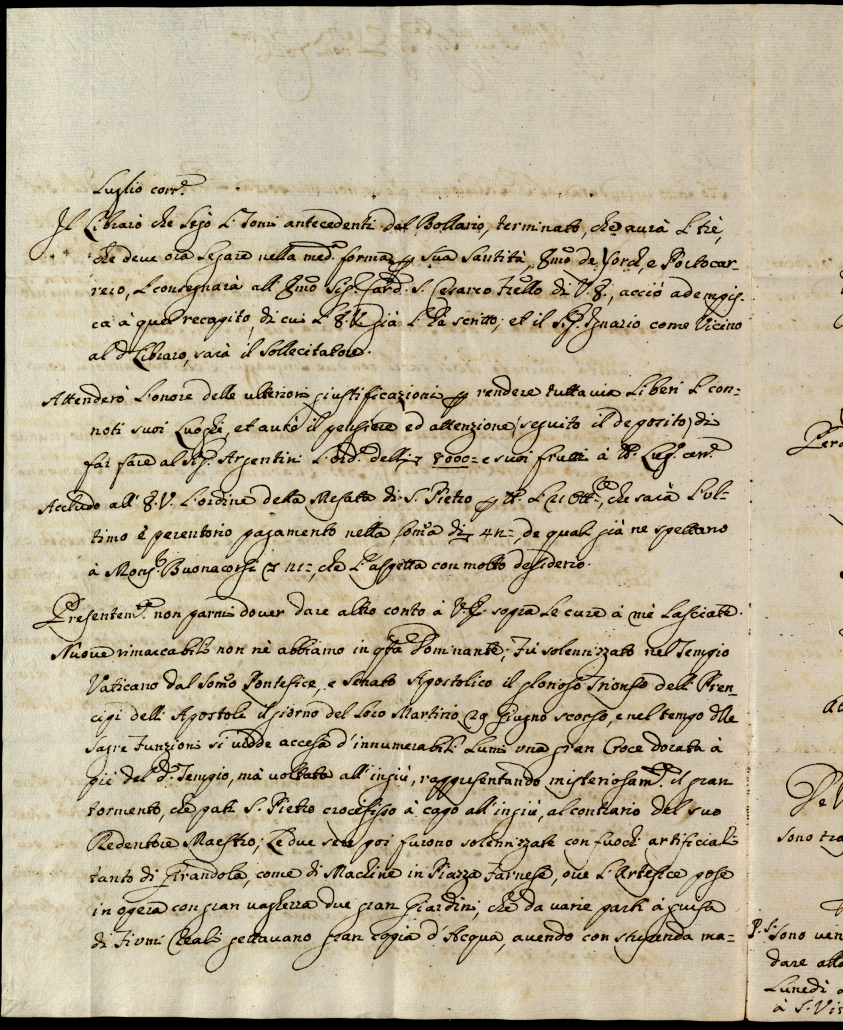 Luglio corr.e
Il Libraro che legò L'Tomi antecedenti del Bollario, terminato, che avrà L'trè,
che deve ora legare nella med.a forma p Sua Santità, Emo de Yorch, e Portocar=
rero, L'consegnarà all'Emo Sig.r Card. S. Cesareo Frello di V.E., acciò adempis=
ca à quel recapito, di cui L'E.V. già L'hà scritto; et il Sig.r Ignazio come Vicino
al d.o Libraro, sarà il sollecitatore.
Attenderò L'onore delle ulteriori giustificazioni p rendere tuttavia Liberi L'con=
noti suoi Luoghi, et avrò il pensiere ed attenzione (seguito il deposito) di
far fare al Sig.r Argentini L'ord. delli 8000= e suoi frutti à tt.o Lug.o corr.e
Accludo all'E.V. L'ordine della Mesata di S. Pietro p tt.o L'21 Ott.re, che sarà L'ul=
timo è perentorio pagamento nella som̃a di 42=, de quali già ne spettano
à Mons.r Buonacorsi 21=, che L'aspetta con molto desiderio.
Presentem.te non parmi dover dare altro conto à V.E. sopra Le cure à mè Lasciate.
Nuove rimarcabili non nè abbiamo in q̃sta Dominante; Fù solennizzato nel Tempio
Vaticano dal Som̃o Pontefice, e Senato Apostolico il glorioso Trionfo dell Pren=
cipi delli Apostoli il giorno del Loro Martirio 29 Giugno scorso, e nel tempo dlle
Sagre Funzioni si vidde accesa d'innumerabili Lumi una gran Croce dorata à
piè del d.o Tempio, mà voltata all'ingiù, rappresentando misteriosam.te il gran
tormento, che patì S. Pietro crocefisso à capo all'ingiù, al contrario del suo
Redentore Maestro; Le due sere poi furono solennizzate con fuochi artificiali
tanto di Girandola, come di Machine in Piazza Farnese, ove L'Artefice pose
in opera con gran vaghezza due gran Giardini, che da varie parti à guisa
di Fiumi Reali gettavano gran copia d'Acqua, avendo con stupenda ma=
P.S. Sono ven
dare all
Lunedì
à S. Vi
sono tra